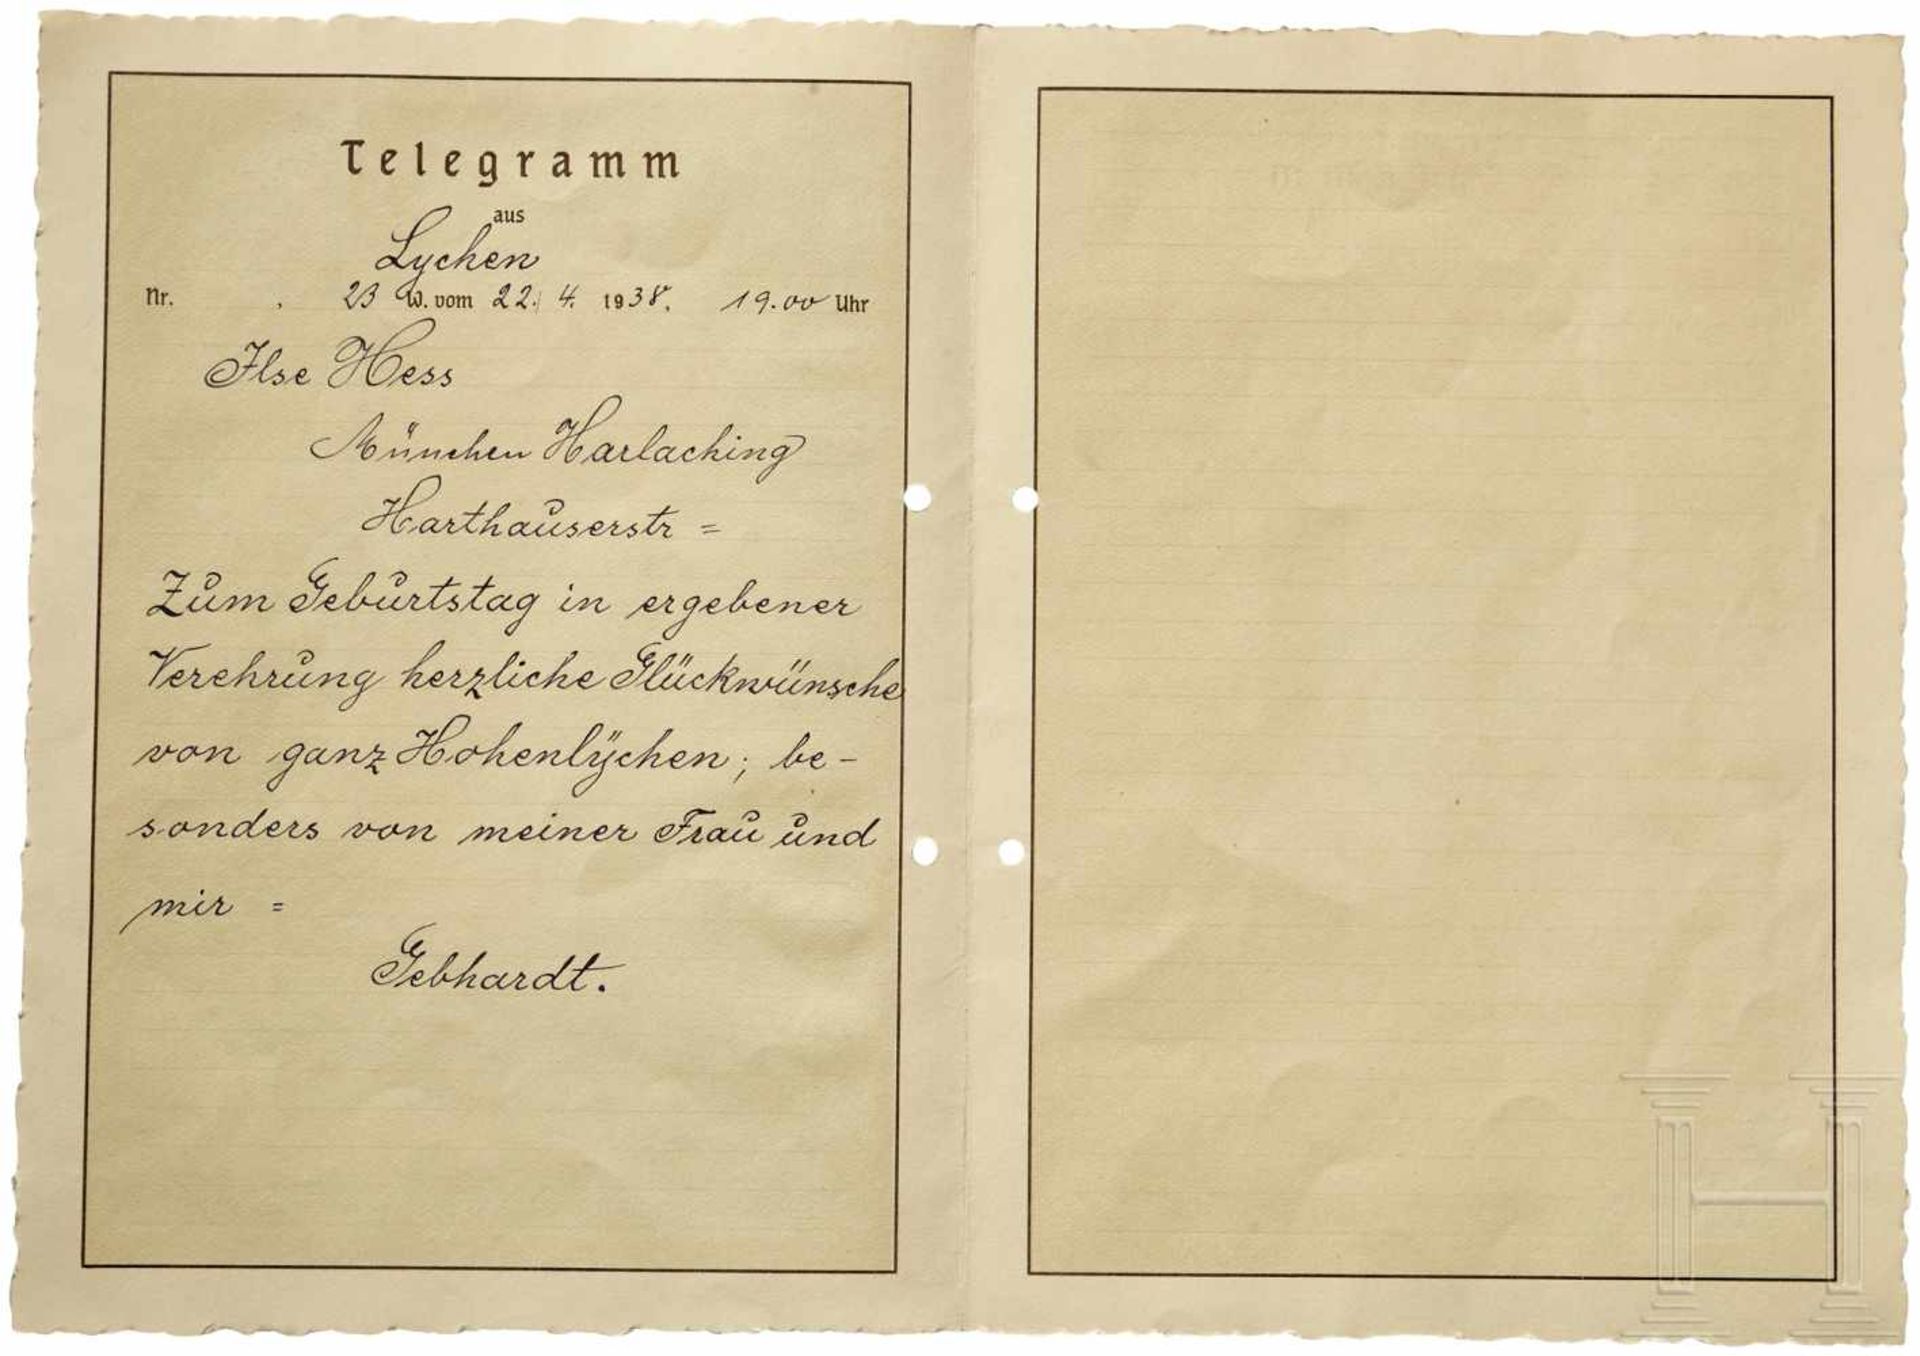 Telegramm
aus
Lychen
Nr. 23 W. vom 22. 4. 1938. 19.00 Uhr
Ilse Hess
München Harlaching
Harthauserstr =
Zum Geburtstag in ergebener
Verehrung herzliche Glückwünsche
von ganz Hohenlÿchen; be-
sonders von meiner Frau und
mir =
Gebhardt.
H